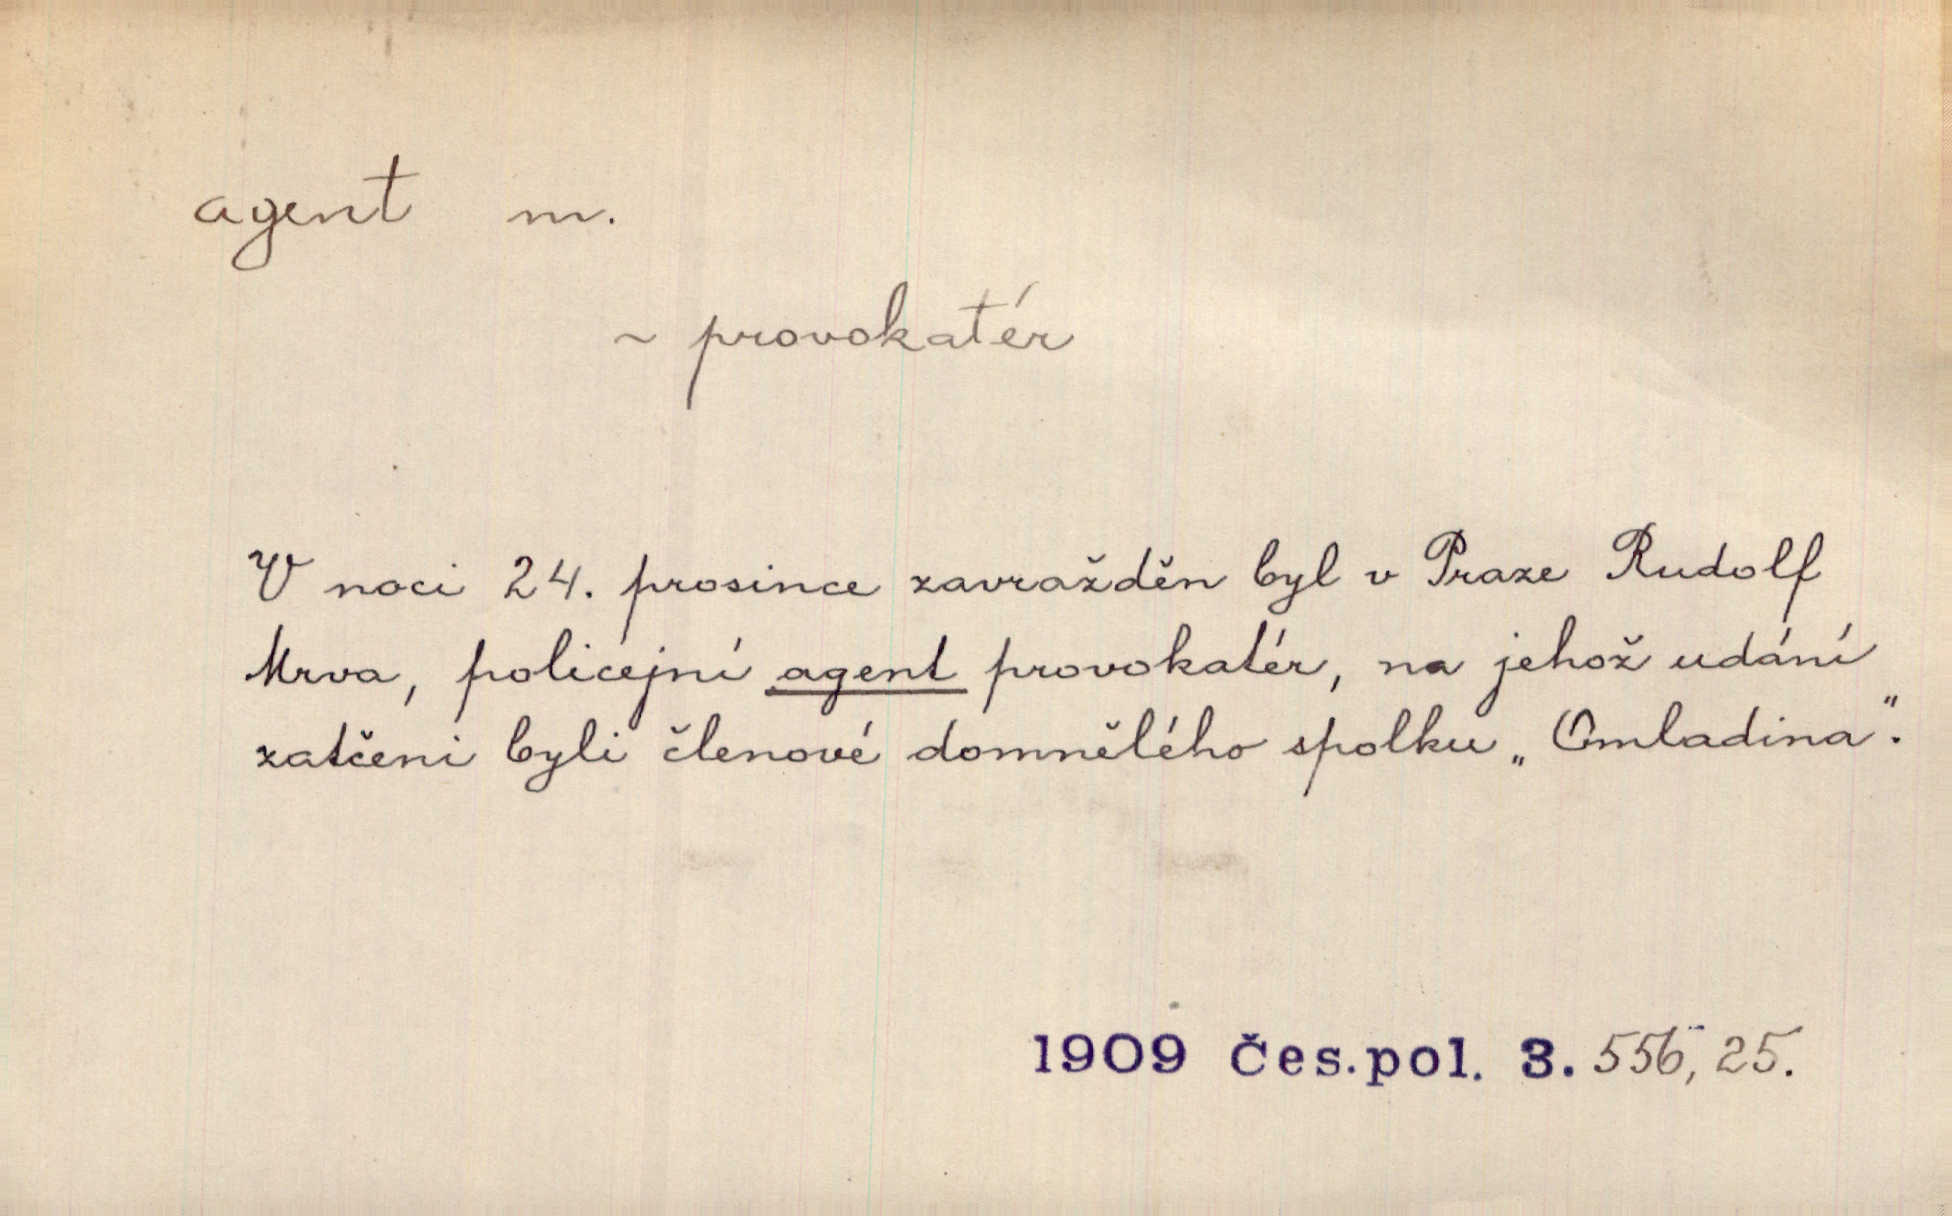 agent m.
~ provokatér
V noci 24. prosince zavražděn byl v Praze Rudolf
Mrva, policejní agent provokatér, na jehož udání
zatčeni byli členové domnělého spolku „Omladina“.
1909 Čes.pol. 3. 556, 25.